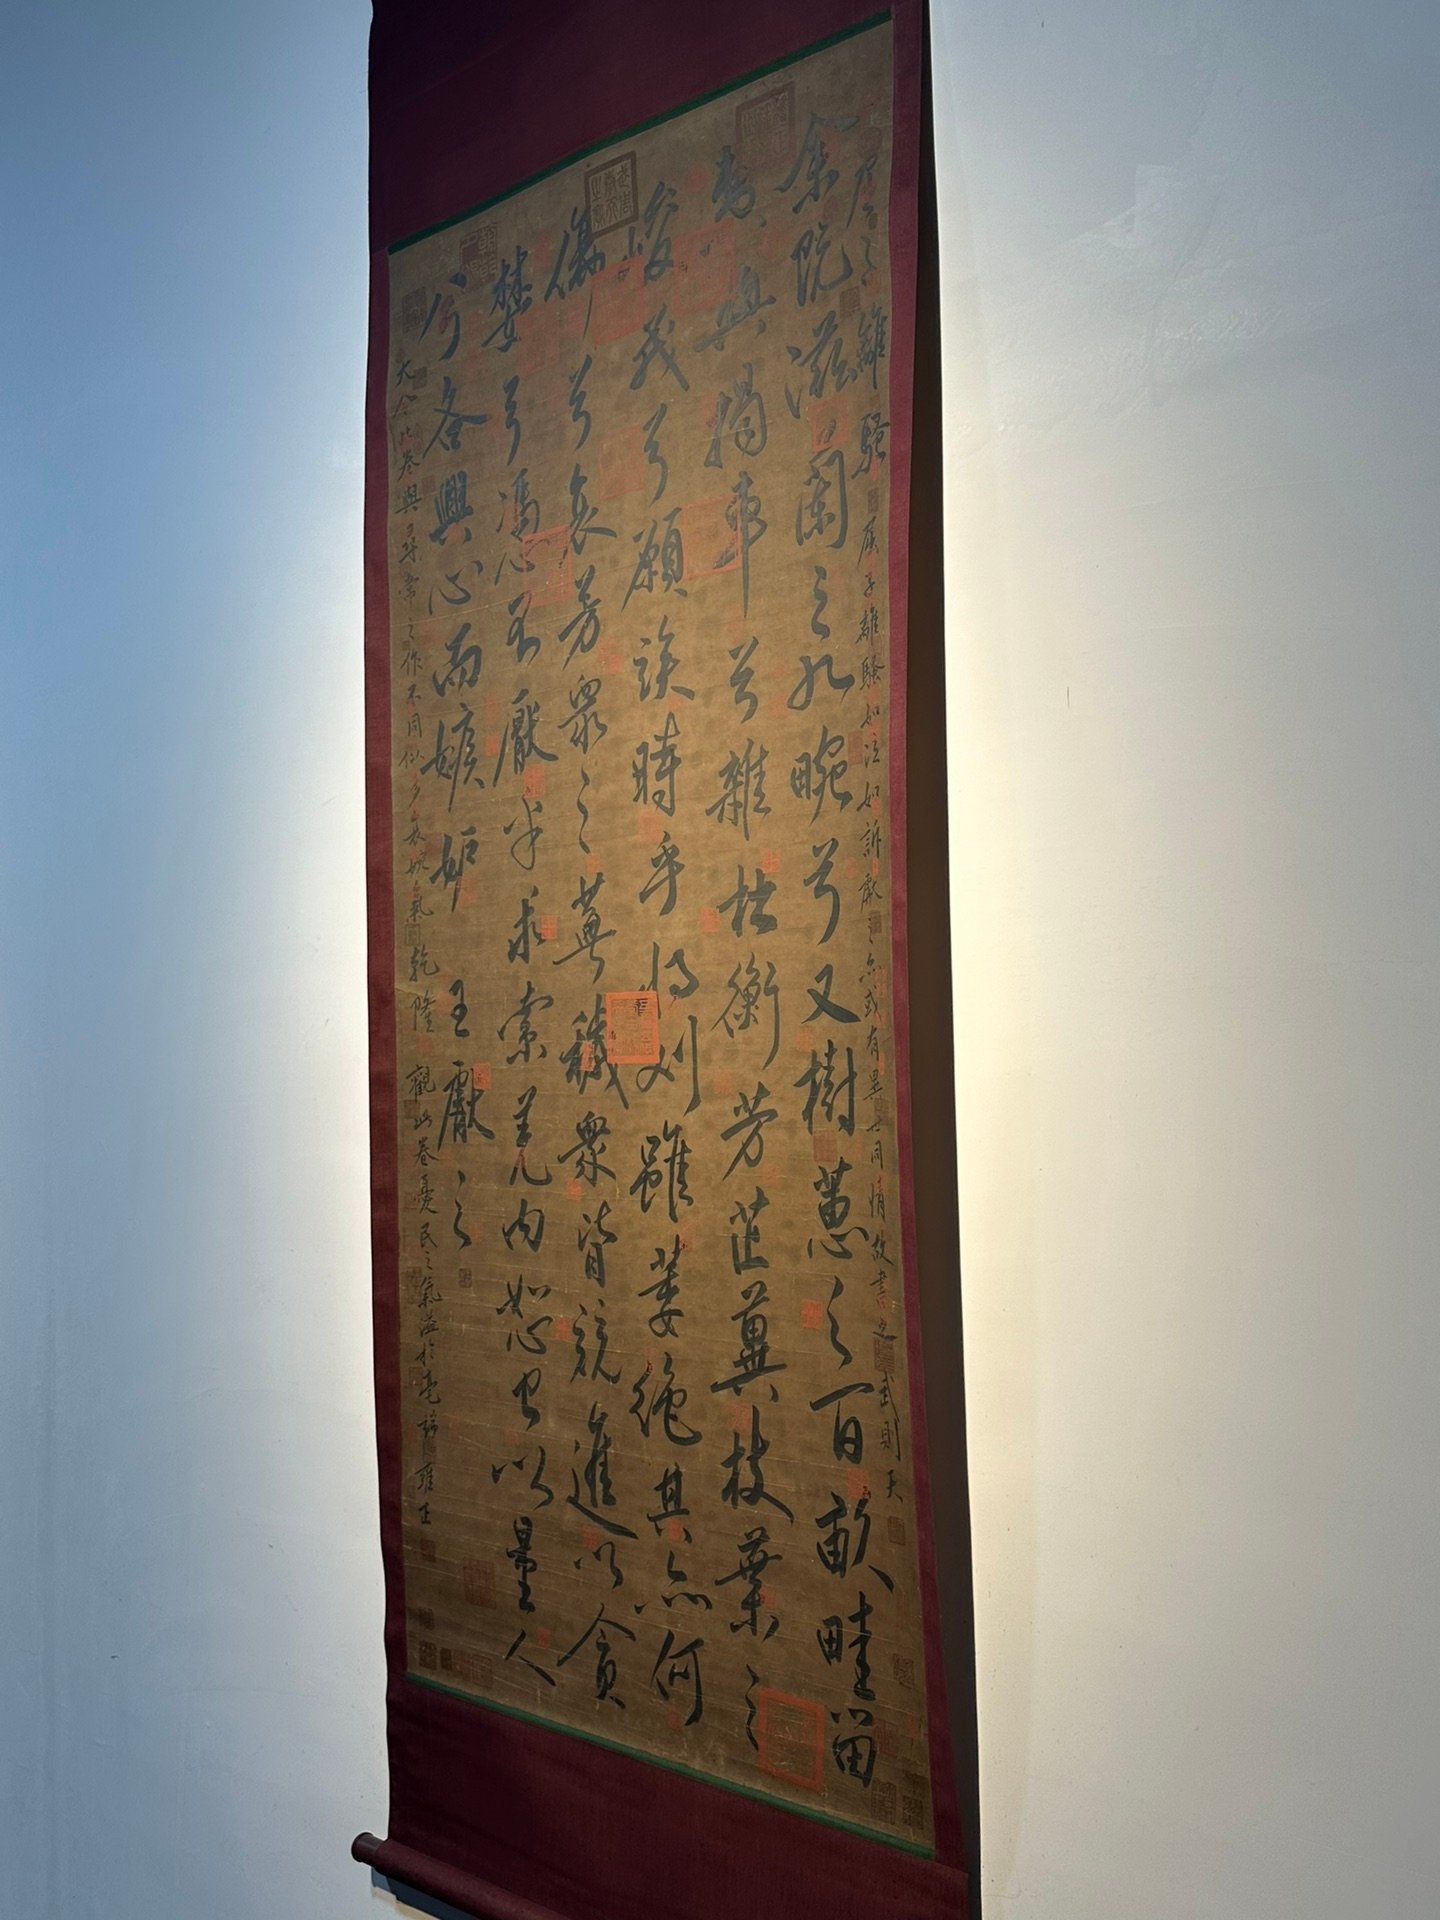 屈之離騷 屈子離騷如泣如訴獻之亦或有異世同情故書之 武則天
余既滋蘭之九畹兮又樹蕙之百畝畦留
夷與揭車兮雜杜衡芳芷冀枝葉之
峻茂兮願竢時乎將刈雖萎絕其亦何
傷兮哀芳衆之蕪穢衆皆競進以貪
婪兮馮不厭乎求索羌內恕己以量人
兮各興心而嫉妒 王獻之
大令此卷與尋常之作不同似多哀婉氣 乾隆 觀此卷憂民之氣溢於毫端 雍正